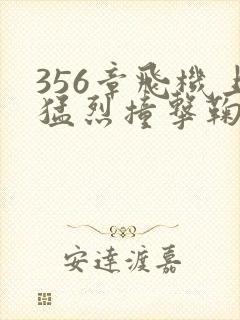 356章飛機上
猛烈撞撃鞠
安達渡嘉